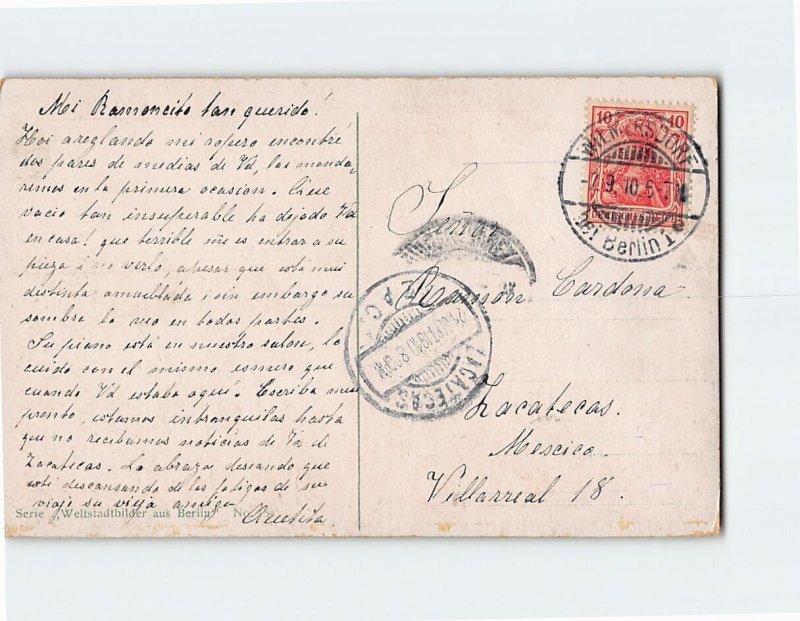 Mi Ramoncito tan querido!
Hoi areglando mi ropero encontré
dos pares de medias de Vd, las manda-
remos en la primera ocasion. Que
vacio tan insuperable ha dejado Vd
en casa! que terrible me es entrar a su
pieza i no verlo, apesar que está mui
distinta amueblada i sin embargo su
sombra la veo en todas partes.
Su piano está en nuestro salon, lo
cuido con el mismo esmero que
cuando Vd estaba aquí. Escriba mui
pronto, estamos intranquilas hasta
que no recibamos noticias de Vd de
Zacatecas. Lo abraza deseando que
esté descansando de las fatigas de su
viaje su vieja amiga
Anetita
Serie „Weltstadtbilder aus Berlin“ No.
10 10
WILMERSDORF
9.10.5-
bei Berlin 1
Señor
Ramón Cardona
Zacatecas.
Mescico.
Villarreal 18.
ZAC.
ZACATECAS